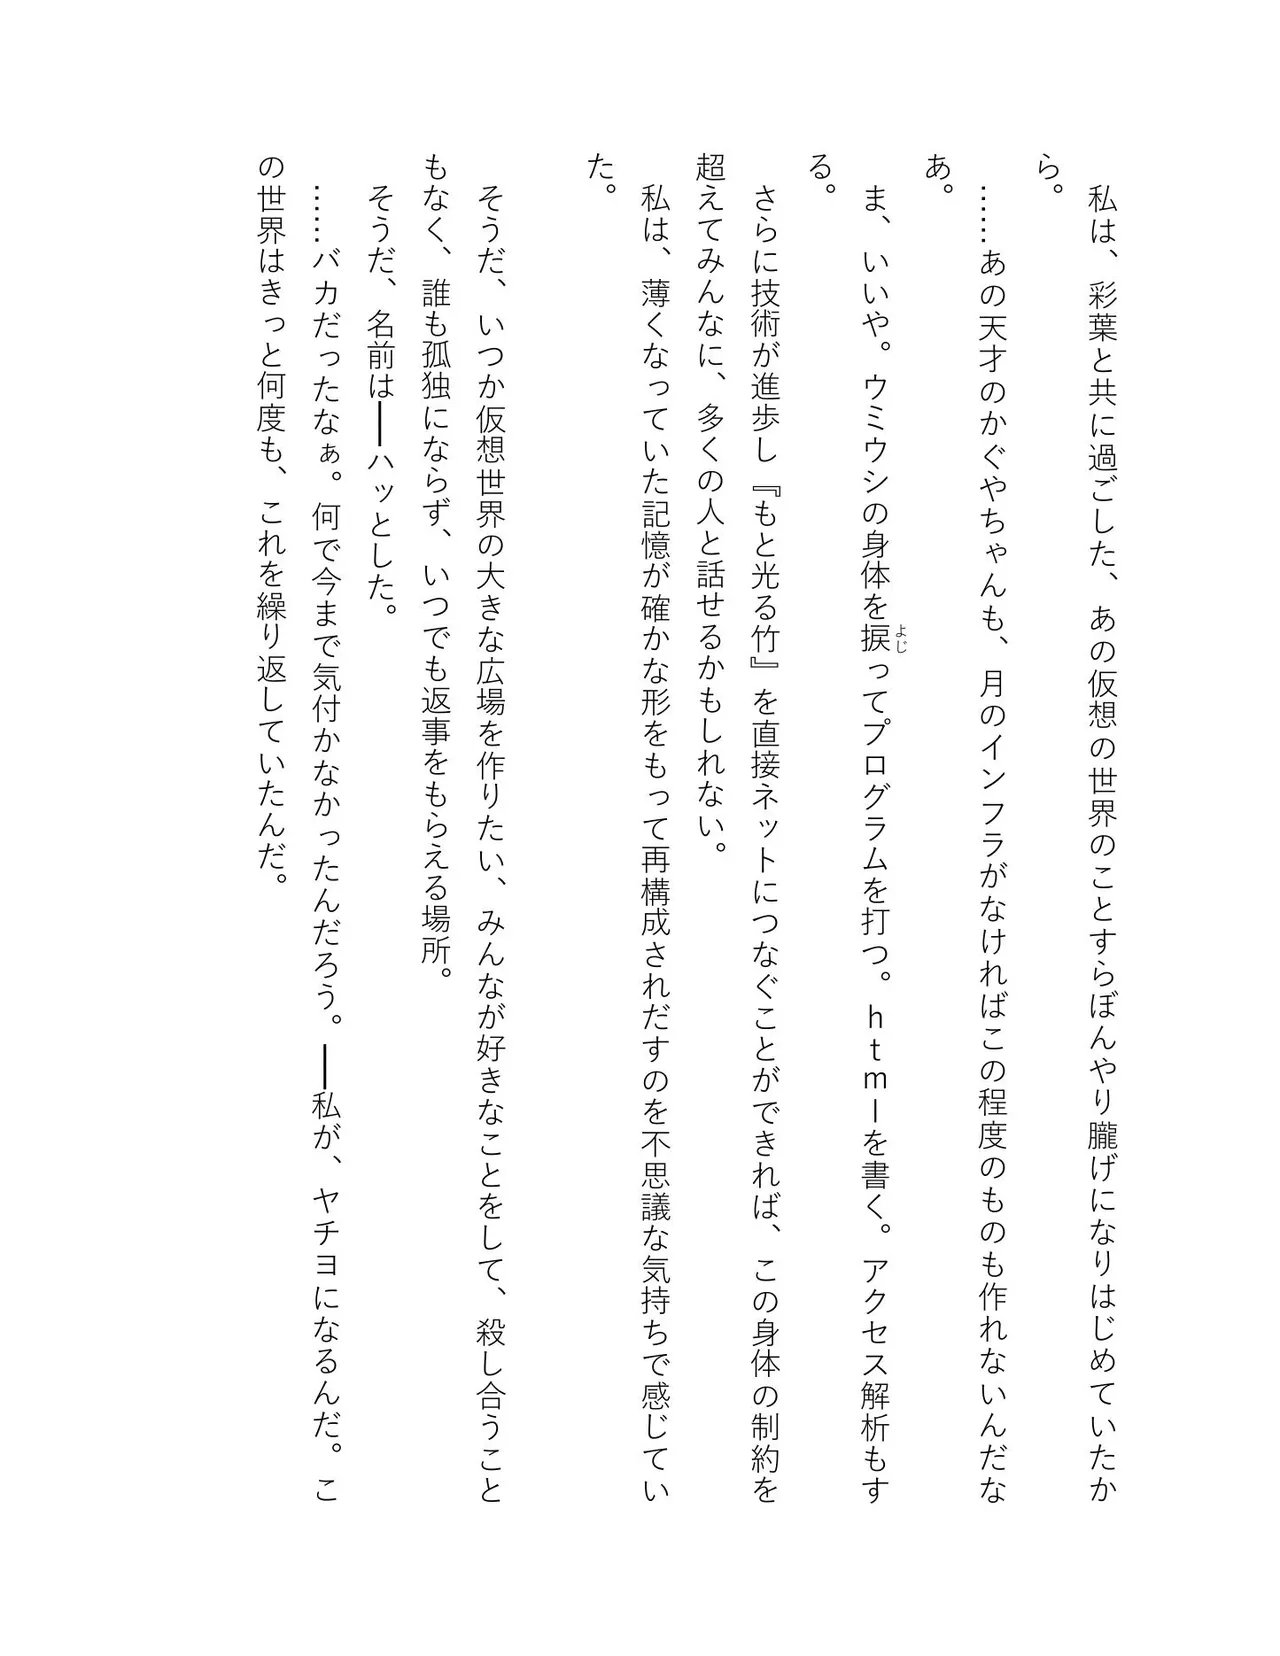 私は、彩葉と共に過ごした、あの仮想の世界のことすらぼんやり朧げになりはじめていたか
ら。
……あの天才のかぐやちゃんも、月のインフラがなければこの程度のものも作れないんだな
あ。
ま、いいや。ウミウシの身体を捩ってプログラムを打つ。ｈｔｍｌを書く。アクセス解析もす
よじ
る。
さらに技術が進歩し『もと光る竹』を直接ネットにつなぐことができれば、この身体の制約を
超えてみんなに、多くの人と話せるかもしれない。
私は、薄くなっていた記憶が確かな形をもって再構成されだすのを不思議な気持ちで感じてい
た。
そうだ、いつか仮想世界の大きな広場を作りたい、みんなが好きなことをして、殺し合うこと
もなく、誰も孤独にならず、いつでも返事をもらえる場所。
そうだ、名前は――ハッとした。
……バカだったなぁ。何で今まで気付かなかったんだろう。――私が、ヤチヨになるんだ。こ
の世界はきっと何度も、これを繰り返していたんだ。